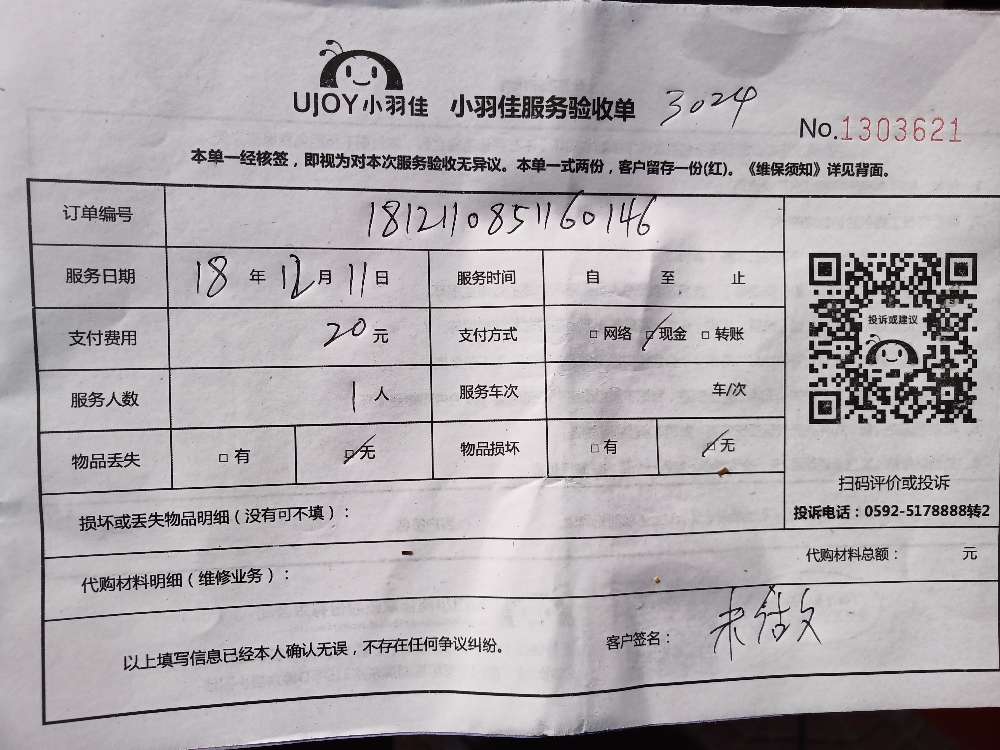 UJOY小羽佳 小羽佳服务验收单 3024
No.1303621
本单一经核签，即视为对本次服务验收无异议。本单一式两份，客户留存一份(红)。《维保须知》详见背面。
订单编号 1812110851160146
服务日期 18 年 12 月 11 日 服务时间 自 至 止
支付费用 20 元 支付方式 □ 网络 □ 现金 □ 转账
服务人数 1 人 服务车次 车/次
物品丢失 □ 有 □ 无 物品损坏 □ 有 □ 无
投诉或建议
扫码评价或投诉
投诉电话：0592-5178888转2
损坏或丢失物品明细（没有可不填）：
代购材料明细（维修业务）： 代购材料总额： 元
以上填写信息已经本人确认无误，不存在任何争议纠纷。 客户签名：